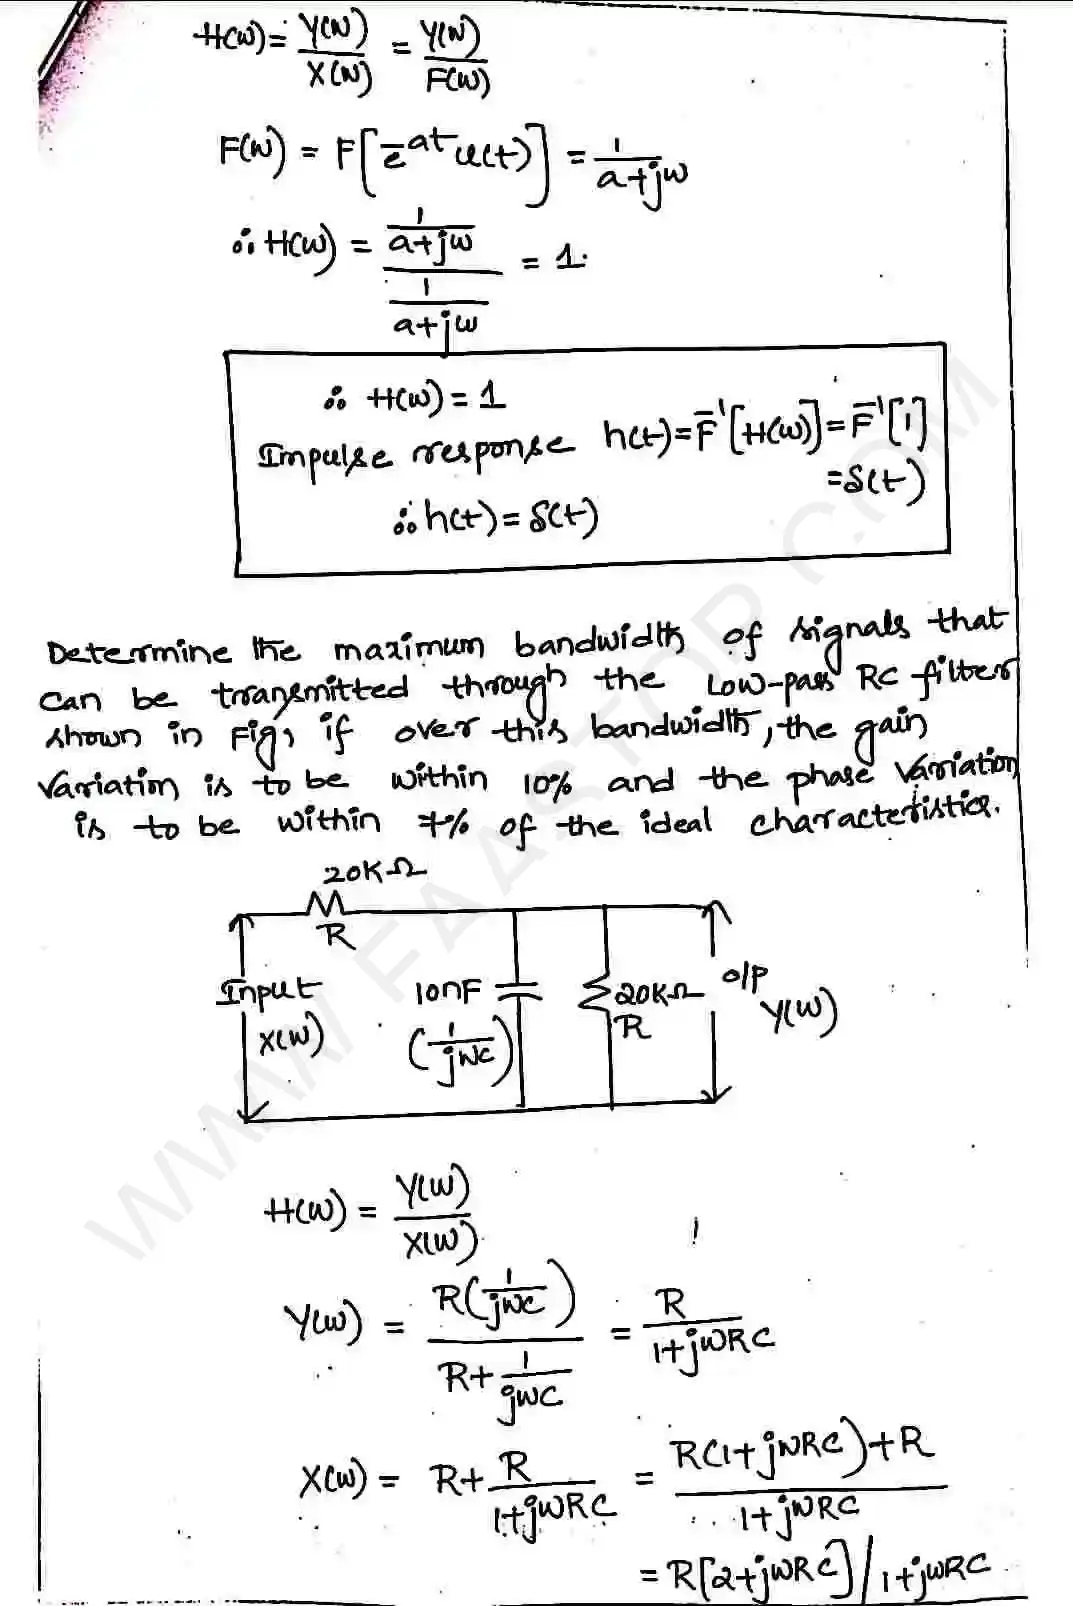 H(ω) = Y(ω)/X(ω) = Y(ω)/F(ω)
F(ω) = F[e^-at u(t)] = 1/(a+jω)
∴ H(ω) = (1/(a+jω))/(1/(a+jω)) = 1.
∴ H(ω) = 1
Impulse response h(t) = F^-1[H(ω)] = F^-1[1]
= δ(t)
∴ h(t) = δ(t)
Determine the maximum bandwidth of signals that
can be transmitted through the Low-pass RC filter
shown in Fig, if over this bandwidth, the gain
Variation is to be within 10% and the phase variation
is to be within 7% of the ideal characteristics.
20KΩ
R
Input
X(ω)
10nF
(1/jωc)
20KΩ
R
o/p
Y(ω)
H(ω) = Y(ω)/X(ω)
Y(ω) = R(1/jωc)/(R+1/jωc) = R/(1+jωRC)
X(ω) = R+R/(1+jωRC) = (R(1+jωRC)+R)/(1+jωRC)
= R[2+jωRC]/1+jωRC
WWW.FAASTOP.COM